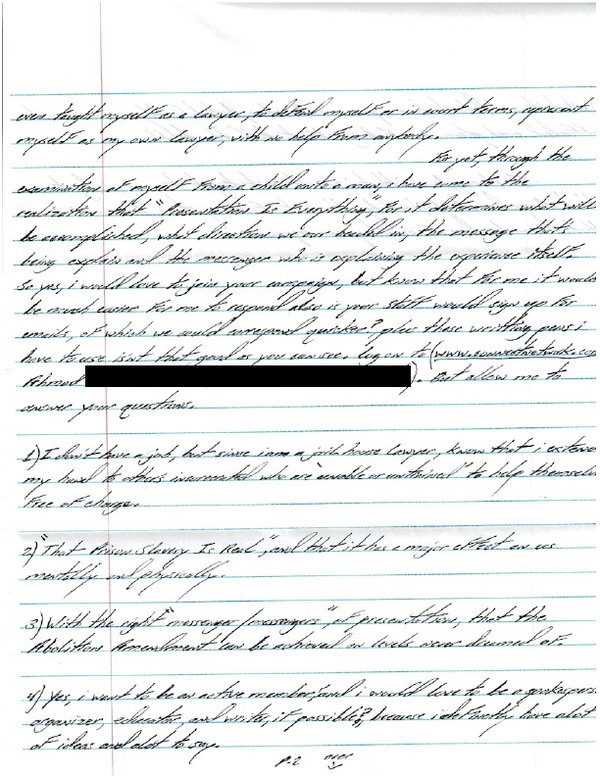 even taught myself as a lawyer, to defend myself or in court terms, represent
myself as my own lawyer, with no help from anybody.
For yet, through the
examination of myself from a child onto a man, i have come to the
realization that "Presentation Is Everything", For it determines what will
be accomplished, what direction we our headed in, the message that's
being explain and the messenger who is explaining the experience itself.
So yes, i would love to join your campaign, but know that for me it would
be much easier for me to respond also is your staff would sign up for
emails, of which we could correspond quicker? plus these writting pens i
have to use isnt that good as you can see. log on to (www.connectnetwork.com
Ahmad ). But allow me to
answer your questions.
1) I don't have a job, but since i am a jail house lawyer, know that i extend
my hand to others incarcerated who are "unable or untrained" to help themselves
free of charge.
2) "That Prison Slavery Is Real", and that it has a major effect on us
mentally and physically.
3) With the right "messenger/messengers", of presentation, that the
Abolition Amendment can be achieved on levels never dreamed of.
4) Yes, i want to be an active member, and i would love to be a spokesperson
organizer, educator, and writer, if possible?, because i definetly have alot
of ideas and alot to say.
P.2 over